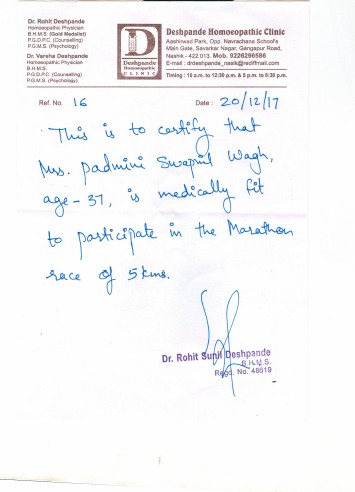 Dr. Rohit Deshpande
Homoeopathic Physician
B.H.M.S. (Gold Medalist)
P.G.D.P.C. (Counselling)
P.G.M.S. (Psychology)
Dr. Varsha Deshpande
Homoeopathic Physician
B.H.M.S.
P.G.D.P.C. (Counselling)
P.G.M.S. (Psychology)
D
Deshpande
Homoeopathic
CLINIC
Deshpande Homoeopathic Clinic
Aashirwad Park, Opp. Navrachana School's
Main Gate, Savarkar Nagar, Gangapur Road,
Nashik - 422 013. Mob. 9226296586
E-mail : drdeshpande_nasik@rediffmail.com
Timing : 10 a.m. to 12:30 p.m. & 5 p.m. to 8:30 p.m.
Ref. No. 16
Date : 20/12/17
This is to certify that
Mrs. Padmini Swapnil Wagh,
age - 37, is medically fit
to participate in the Marathon
race of 5 kms.
Dr. Rohit Sunil Deshpande
B.H.M.S.
Regd. No. 48619